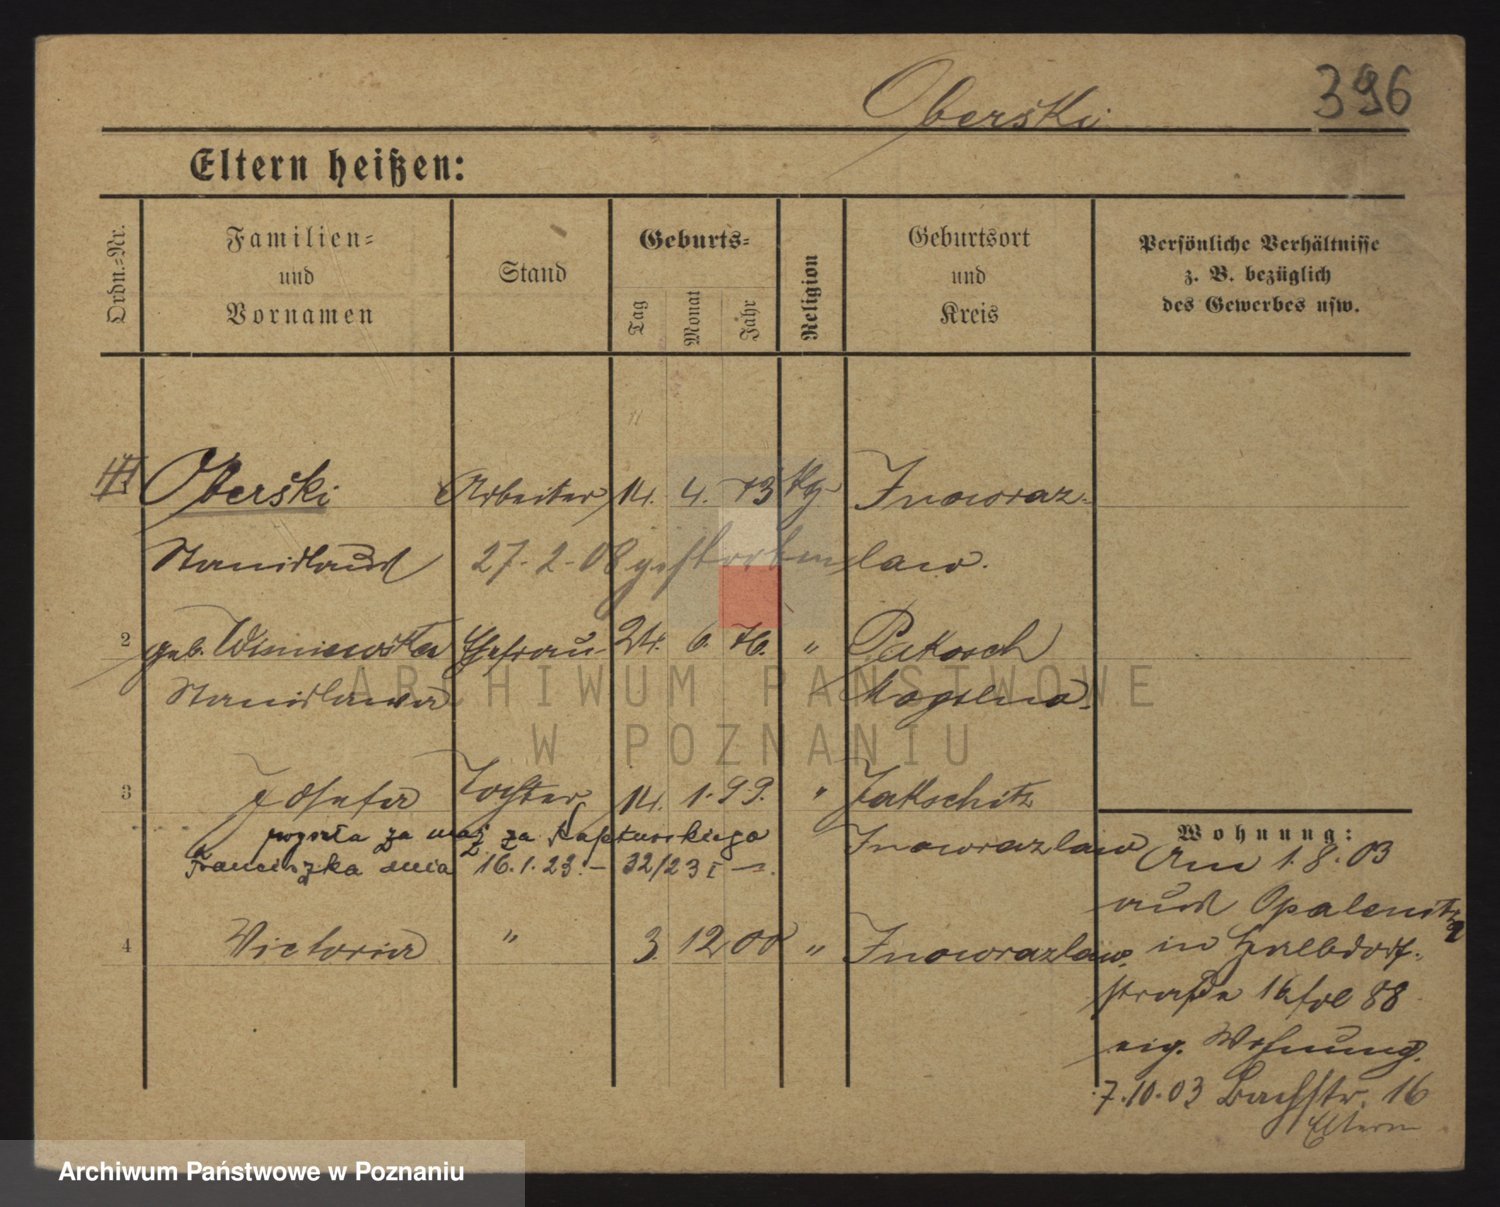 Oberski
396
Eltern heißen:
Ordn.-Nr.
Familien-
und
Vornamen
Stand
Geburts-
Tag
Monat
Jahr
Religion
Geburtsort
und
Kreis
Persönliche Verhältnisse
z. B. bezüglich
des Gewerbes usw.
Oberski Arbeiter 14. 4. 73 Inowraz-
Stanislaus 27.2.08 gestorben law.
2 geb. Wisniewska Ehefrau 24. 6. 76. " Pakosch
Stanislawa Mogilno.
3 Josefa Tochter 14. 1. 99. " Jakschitz
poszła za mąż za Kapturskiego Inowrazlaw
Franciszka dnia 16.1.23.— 32/23 I —.
4 Victoria " 3 12 00 " Inowrazlaw.
Wohnung:
Am 1.8.03
aus Opalenitza
in Halbdorf-
straße 16 fol 88
eig. Wohnung.
7.10.03 Bachstr. 16
Eltern
ARCHIWUM PAŃSTWOWE
W POZNANIU
Archiwum Państwowe w Poznaniu